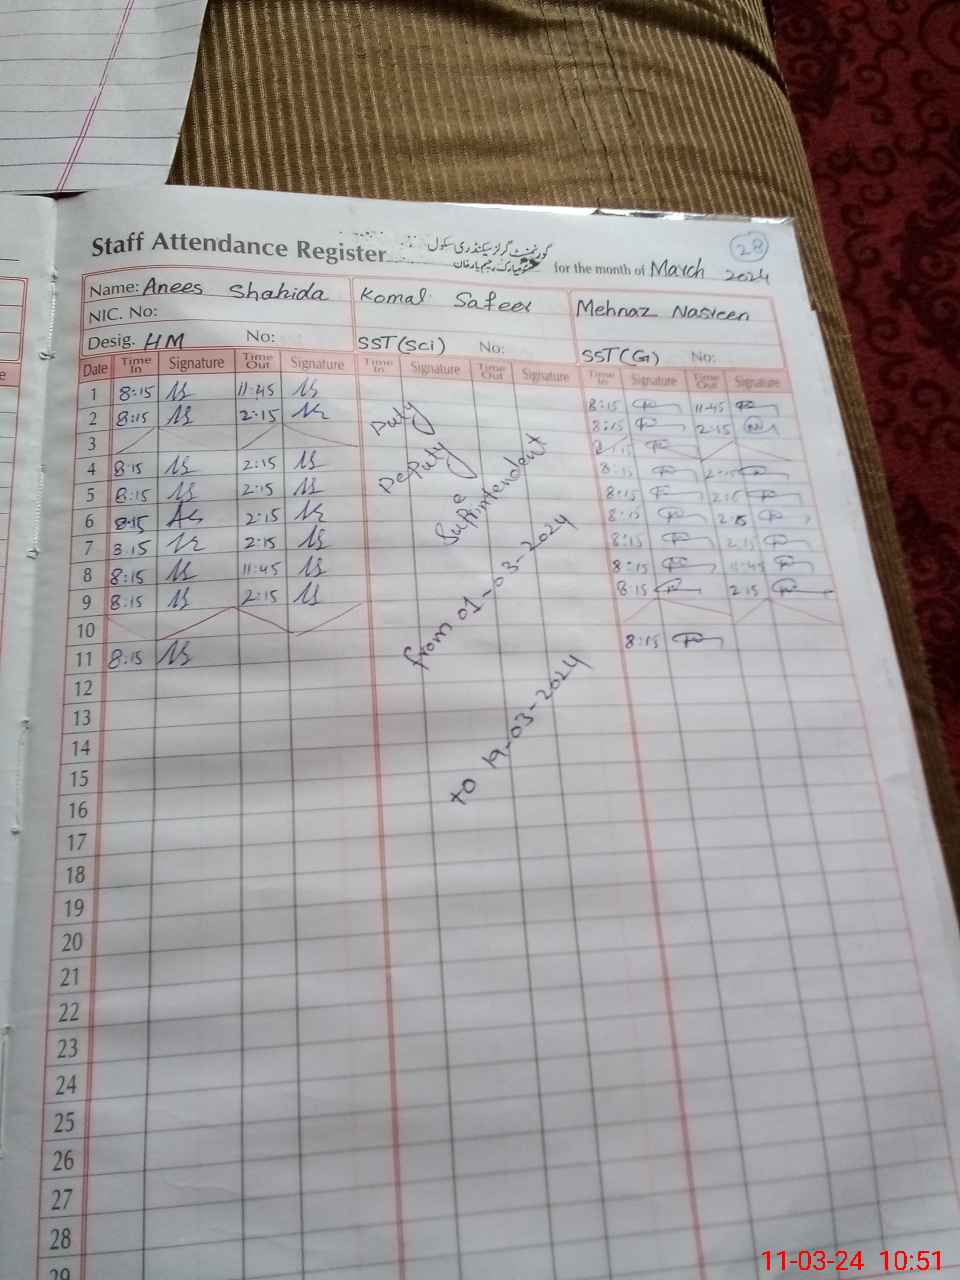 Staff Attendance Register گورنمنٹ گرلز سیکنڈری سکول for the month of March 2024
28
Name: Anees Shahida Komal Safeer Mehnaz Nasreen
NIC. No:
Desig. HM No: SST(Sci) No: SST(G) No:
Date Time In Signature Time Out Signature Time In Signature Time Out Signature Time In Signature Time Out Signature
1 8:15 11:45 8:15 11:45
2 8:15 2:15 8:15 2:15
3
4 8:15 2:15 8:15 2:15
5 8:15 2:15 8:15 2:15
6 8:15 2:15 8:15 2:15
7 8:15 2:15 8:15 2:15
8 8:15 11:45 8:15 11:45
9 8:15 2:15 8:15 2:15
10
11 8:15 8:15
12
13
14
15
16
17
18
19
20
21
22
23
24
25
26
27
28
29
Duty
Deputy
Suprintendent
from 01-03-2024
to 19-03-2024
11-03-24 10:51